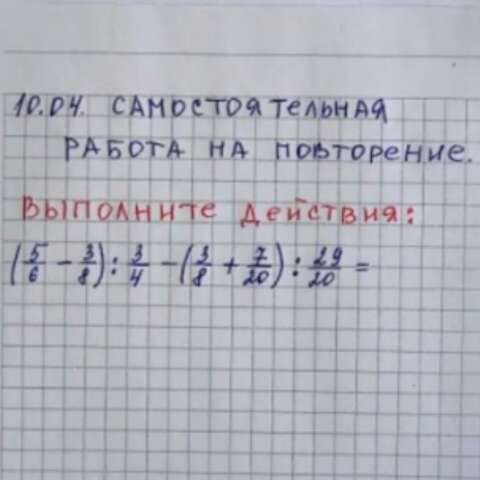 10.04. САМОСТОЯТЕЛЬНАЯ
РАБОТА НА ПОВТОРЕНИЕ.
ВЫПОЛНИТЕ ДЕЙСТВИЯ:
(5/6 - 3/8) : 3/4 - (3/8 + 7/20) : 29/20 =